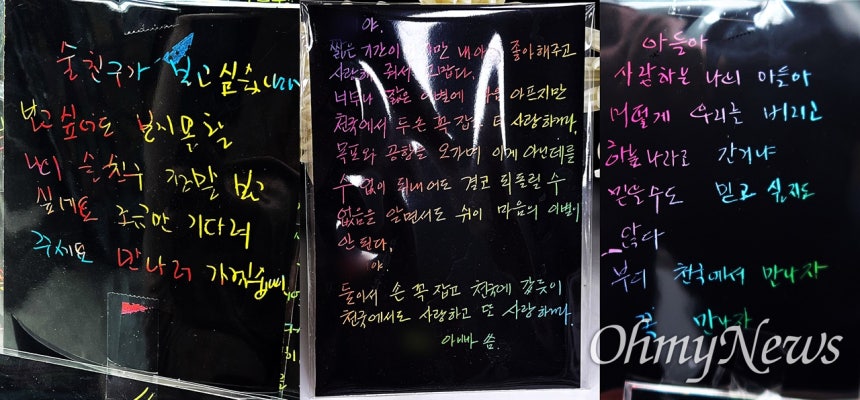 술친구가 보고 싶습니다
보고 싶어도 보지 못할
나의 술친구 정말 보고
싶네요 조금만 기다려
주세요 만나러 가겠습니다
야.
짧은 기간이 만 내 아 좋아해주고
사랑해 줘서 고맙다.
너무나 짧은 이별에 마음 아프지만
천국에서 두 손 꼭 잡고 또 사랑하거라.
목포와 공항을 오가며 이게 아닌데를
수 없이 되뇌어도 결코 되돌릴 수
없음을 알면서도 쉬이 마음의 이별이
안 된다.
야.
둘이서 손 꼭 잡고 천국에 갔듯이
천국에서도 사랑하고 또 사랑하거라.
아빠 씀.
아들아
사랑하는 나의 아들아
어떻게 우리를 버리고
하늘나라로 간거냐
믿을수도 믿고 싶지도
않다
부디 천국에서 만나자
꼭 만나자
OhmyNews